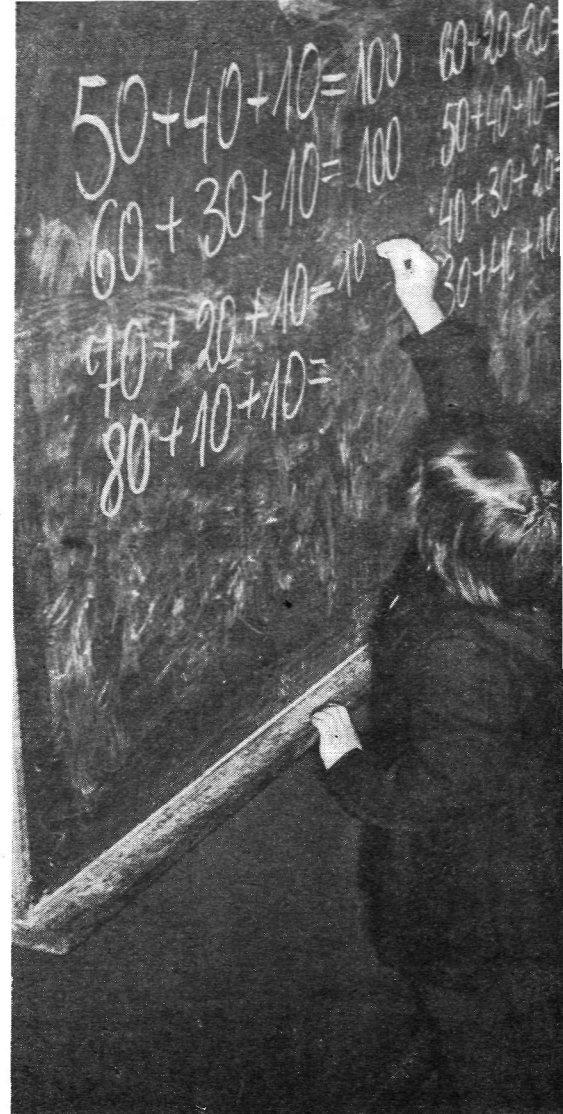 50+40+10=100
60+30+10=100
70+20+10=10
80+10+10=
60+20+20=
50+40+10=
40+30+20=
30+40+10